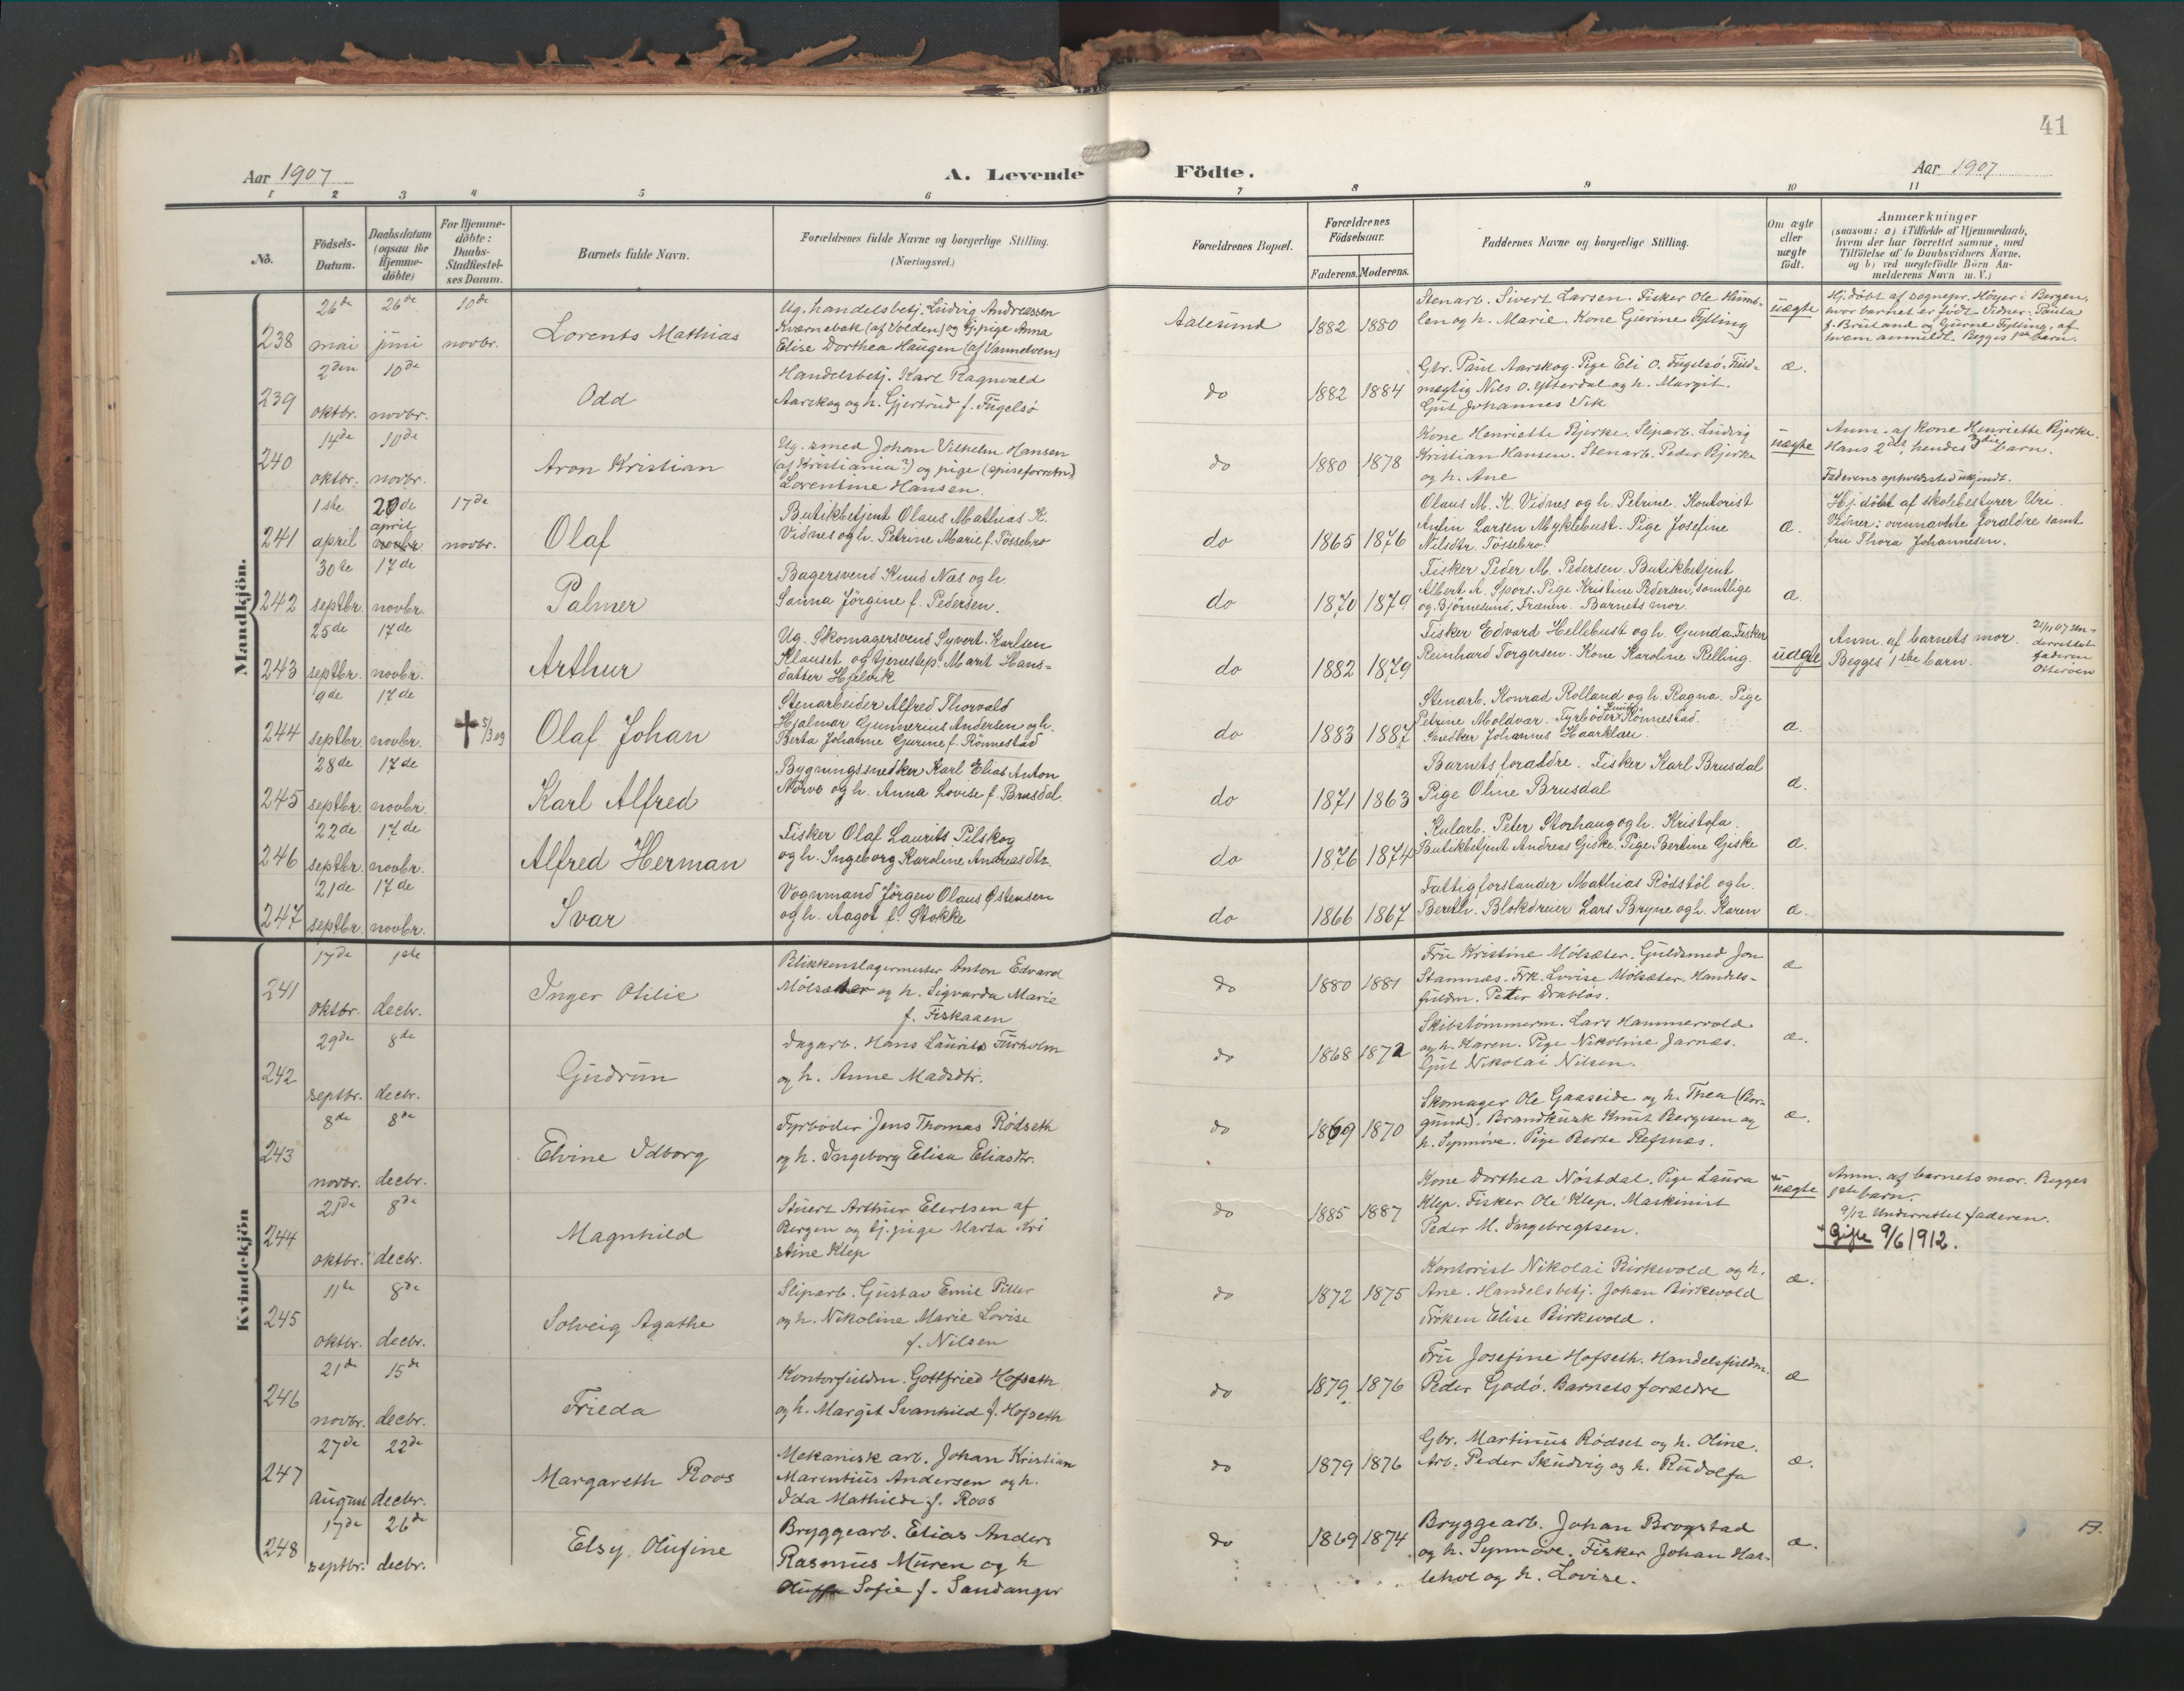 41
Aar 1907
A. Levende Födte.
Aar 1907
1 2 3 4 5 6 7 8 9 10 11
No.
Födsels-Datum.
Daabsdatum (ogsaa for Hjemme-döbte)
For Hjemme-döbte: Daabs-Stadfæstel-ses Datum.
Barnets fulde Navn.
Forældrenes fulde Navne og borgerlige Stilling.
(Næringsvei.)
Forældrenes Bopæl.
Forældrenes Födselsaar.
Faderens. Moderens.
Faddernes Navne og borgerlige Stilling.
Om ægte eller uægte födt.
Anmærkninger
(saasom: a) i Tilfælde af Hjemmedaab,
hvem der har forrettet samme, med
Tilföielse af to Daabsvidners Navne.
og b) ved uægtefödte Börn An-
melderens Navn m. V.)
Mandkjön.
238 26de mai 26de juni 10de novbr.
Lorents Mathias
Ug. handelsbetj. Ludvig Andreassen
Kvernebak (af Volden) og tj. pige Anna
Elise Dorthea Haugen (af Vannelven)
Aalesund 1882 1880
Stenarb. Sivert Larsen. Fisker Ole Humb-
len og h. Marie. Kone Gurine Fylling
uægte
Hj. döbt af sognepr. Höyer i Bergen,
hvor barnet er födt. Vidner: Paula
f. Bruland og Gurine Fylling, af
hvem anmeldt. Begges 1ste barn.
239 2den oktbr. 10de novbr.
Odd
Handelsbetj. Karl Ragnvald
Aarskog og h. Gjertrud f. Fugelsö
do 1882 1884
Gbr. Paul Aarskog. Pige Eli O. Fugelsö. Fuld-
mægtig Nils O. Ytterdal og h. Margit.
Gut Johannes Vik
æ.
240 14de oktbr. 10de novbr.
Aron Kristian
Ug. smed Johan Vilhelm Hansen
(af Kristiania?) og pige (spiseforretn.)
Lorentine Hansen.
do 1880 1878
Kone Henriette Bjerke. Sliparb. Ludvig
Kristian Hansen. Stenarb. Peder Bjerke
og h. Ane
uægte
Anm. af kone Henriette Bjerke.
Hans 2det, hendes 3die barn.
Faderens opholdssted ukjendt.
241 1ste april 20de april novbr. 17de novbr.
Olaf
Butikbetjent Olaus Mathias K.
Vidnes og h. Petrine Marie f. Tössebro
do 1865 1876
Olaus M. K. Vidnes og h. Petrine. Kontorist
Antin Larsen Myklebust. Pige Josefine
Nilsdtr. Tössebro.
æ.
Hj. döbt af skolebestyrer Uri
Vidner: ovennævnte forældre samt
fru Thora Johannesen.
242 30te septbr. 17de novbr.
Palmer
Bagersvend Knud Næs og h.
Sanna Jörgine f. Pedersen.
do 1870 1879
Fisker Peder M. Pedersen. Butikbetjent
Albert A. Spors. Pige Kristine Pedersen, samtlige
og Björnesund, Frænen. Barnets mor.
æ.
243 25de septbr. 17de novbr.
Arthur
Ug. Skomagersvend Syvert Karlsen
Klauset og tjenestep. Marit Hans-
datter Hjelvik
do 1882 1879
Fisker Edvard Hellebust og h. Gunda. Fisker
Reinhard Torgersen. Kone Karoline Relling.
uægte
Anm. af barnets mor.
Begges 1ste barn.
21/11 07 Un-
derrettet
faderen
Osteröen
244 9de septbr. 17de novbr. ✝ 5/3 09
Olaf Johan
Stenarbeider Alfred Thorvald
Hjalmar Gunnerius Andersen og h.
Berta Johanne Gurine f. Rönnestad
do 1883 1887
Stenarb. Konrad Rolland og h. Ragna. Pige
Petrine Moldvær. Fyrböder Rönnestad.
Snedker Johannes Haarklau.
æ.
245 28de septbr. 17de novbr.
Karl Alfred
Bygningssnedker Karl Elias Anton
Nörve og h. Anna Lovise f. Brusdal.
do 1871 1863
Barnets forældre. Fisker Karl Brusdal
Pige Oline Brusdal
æ.
246 22de septbr. 17de novbr.
Alfred Herman
Fisker Olaf Laurits Pilskog
og h. Ingeborg Karoline Andreasdtr.
do 1876 1874
Kularb. Peter Storhaug og h. Kristofa.
Butikbetjent Andreas Giske. Pige Bertine Giske
æ.
247 21de septbr. 17de novbr.
Ivar
Vognmand Jörgen Olaus Østensen
og h. Aagot f. Stokke
do 1866 1867
Fattigforstander Mathias Rödstöl og h.
Bereth. Blokdreier Lars Bryne og h. Karen
æ.
Kvindekjön
241 17de oktbr. 1ste decbr.
Inger Otilie
Blikkenslagermester Anton Edvard
Mölsæter og h. Sigvarda Marie
f. Fiskaaen
do 1880 1881
Fru Kristine Mölsæter. Guldsmed Jon
Stamnæs. Frk. Lovise Mölsæter. Handels-
fuldm. Peter Drablös.
æ
242 29de septbr. 8de decbr.
Gudrun
Dagarb. Hans Laurits Furholm
og h. Anne Madsdtr.
do 1868 1872
Skibstömmerm. Lars Hammervold
og h. Karen. Pige Nikoline Jarnæs.
Gut Nikolai Nilsen.
æ.
243 8de novbr. 8de decbr.
Elvine Idborg
Fyrböder Jens Thomas Rödseth
og h. Ingeborg Elisa Eliasdtr.
do 1869 1870
Skomager Ole Gaaseide og h. Thea (Bor-
gund). Brandkusk Knut Bergesen og
h. Synnöve. Pige Berte Refsnæs.
æ.
244 21de oktbr. 8de decbr.
Magnhild
Stuert Arthur Elertsen af
Bergen og tj. pige Marta Kri
stine Klep
do 1885 1887
Kone Dorthea Nöstdal. Pige Laura
Klep. Fisker Ole Klep. Maskinist
Peder M. Ingebregtsen.
uægte
Anm. af barnets mor. Begges
1ste barn.
9/12 Underrettet faderen.
+ Gifte 9/6 1912.
245 11te oktbr. 8de decbr.
Solveig Agathe
Sliparb. Gustav Emil Pitter
og h. Nikoline Marie Lovise
f. Nilsen
do 1872 1875
Kontorist Nikolai Birkevold og h.
Ane. Handelsbetj. Johan Birkevold
Fröken Elise Birkevold.
æ.
246 21de novbr. 15de decbr.
Frieda
Kontorfuldm. Gottfried Hofseth
og h. Margit Svanhild f. Hofseth
do 1879 1876
Fru Josefine Hofseth. Handelsfuldm.
Peder Godö. Barnets forældre
æ
247 27de august 22de decbr.
Margareth Roos
Mekanisk arb. Johan Kristian
Marentius Andersen og h.
Ida Mathilde f. Roos
do 1879 1876
Gbr. Martinus Rödset og h. Oline.
Arb. Peder Skudvig og h. Rudolfa
æ.
248 17de septbr. 26de decbr.
Elsy Olufine
Bryggearb. Elias Anders
Rasmus Muren og h
Sofie f. Sandanger
do 1869 1874
Bryggearb. Johan Brogstad
og h. Synnöve. Fisker Johan Has-
lehol og h. Lovise.
æ.